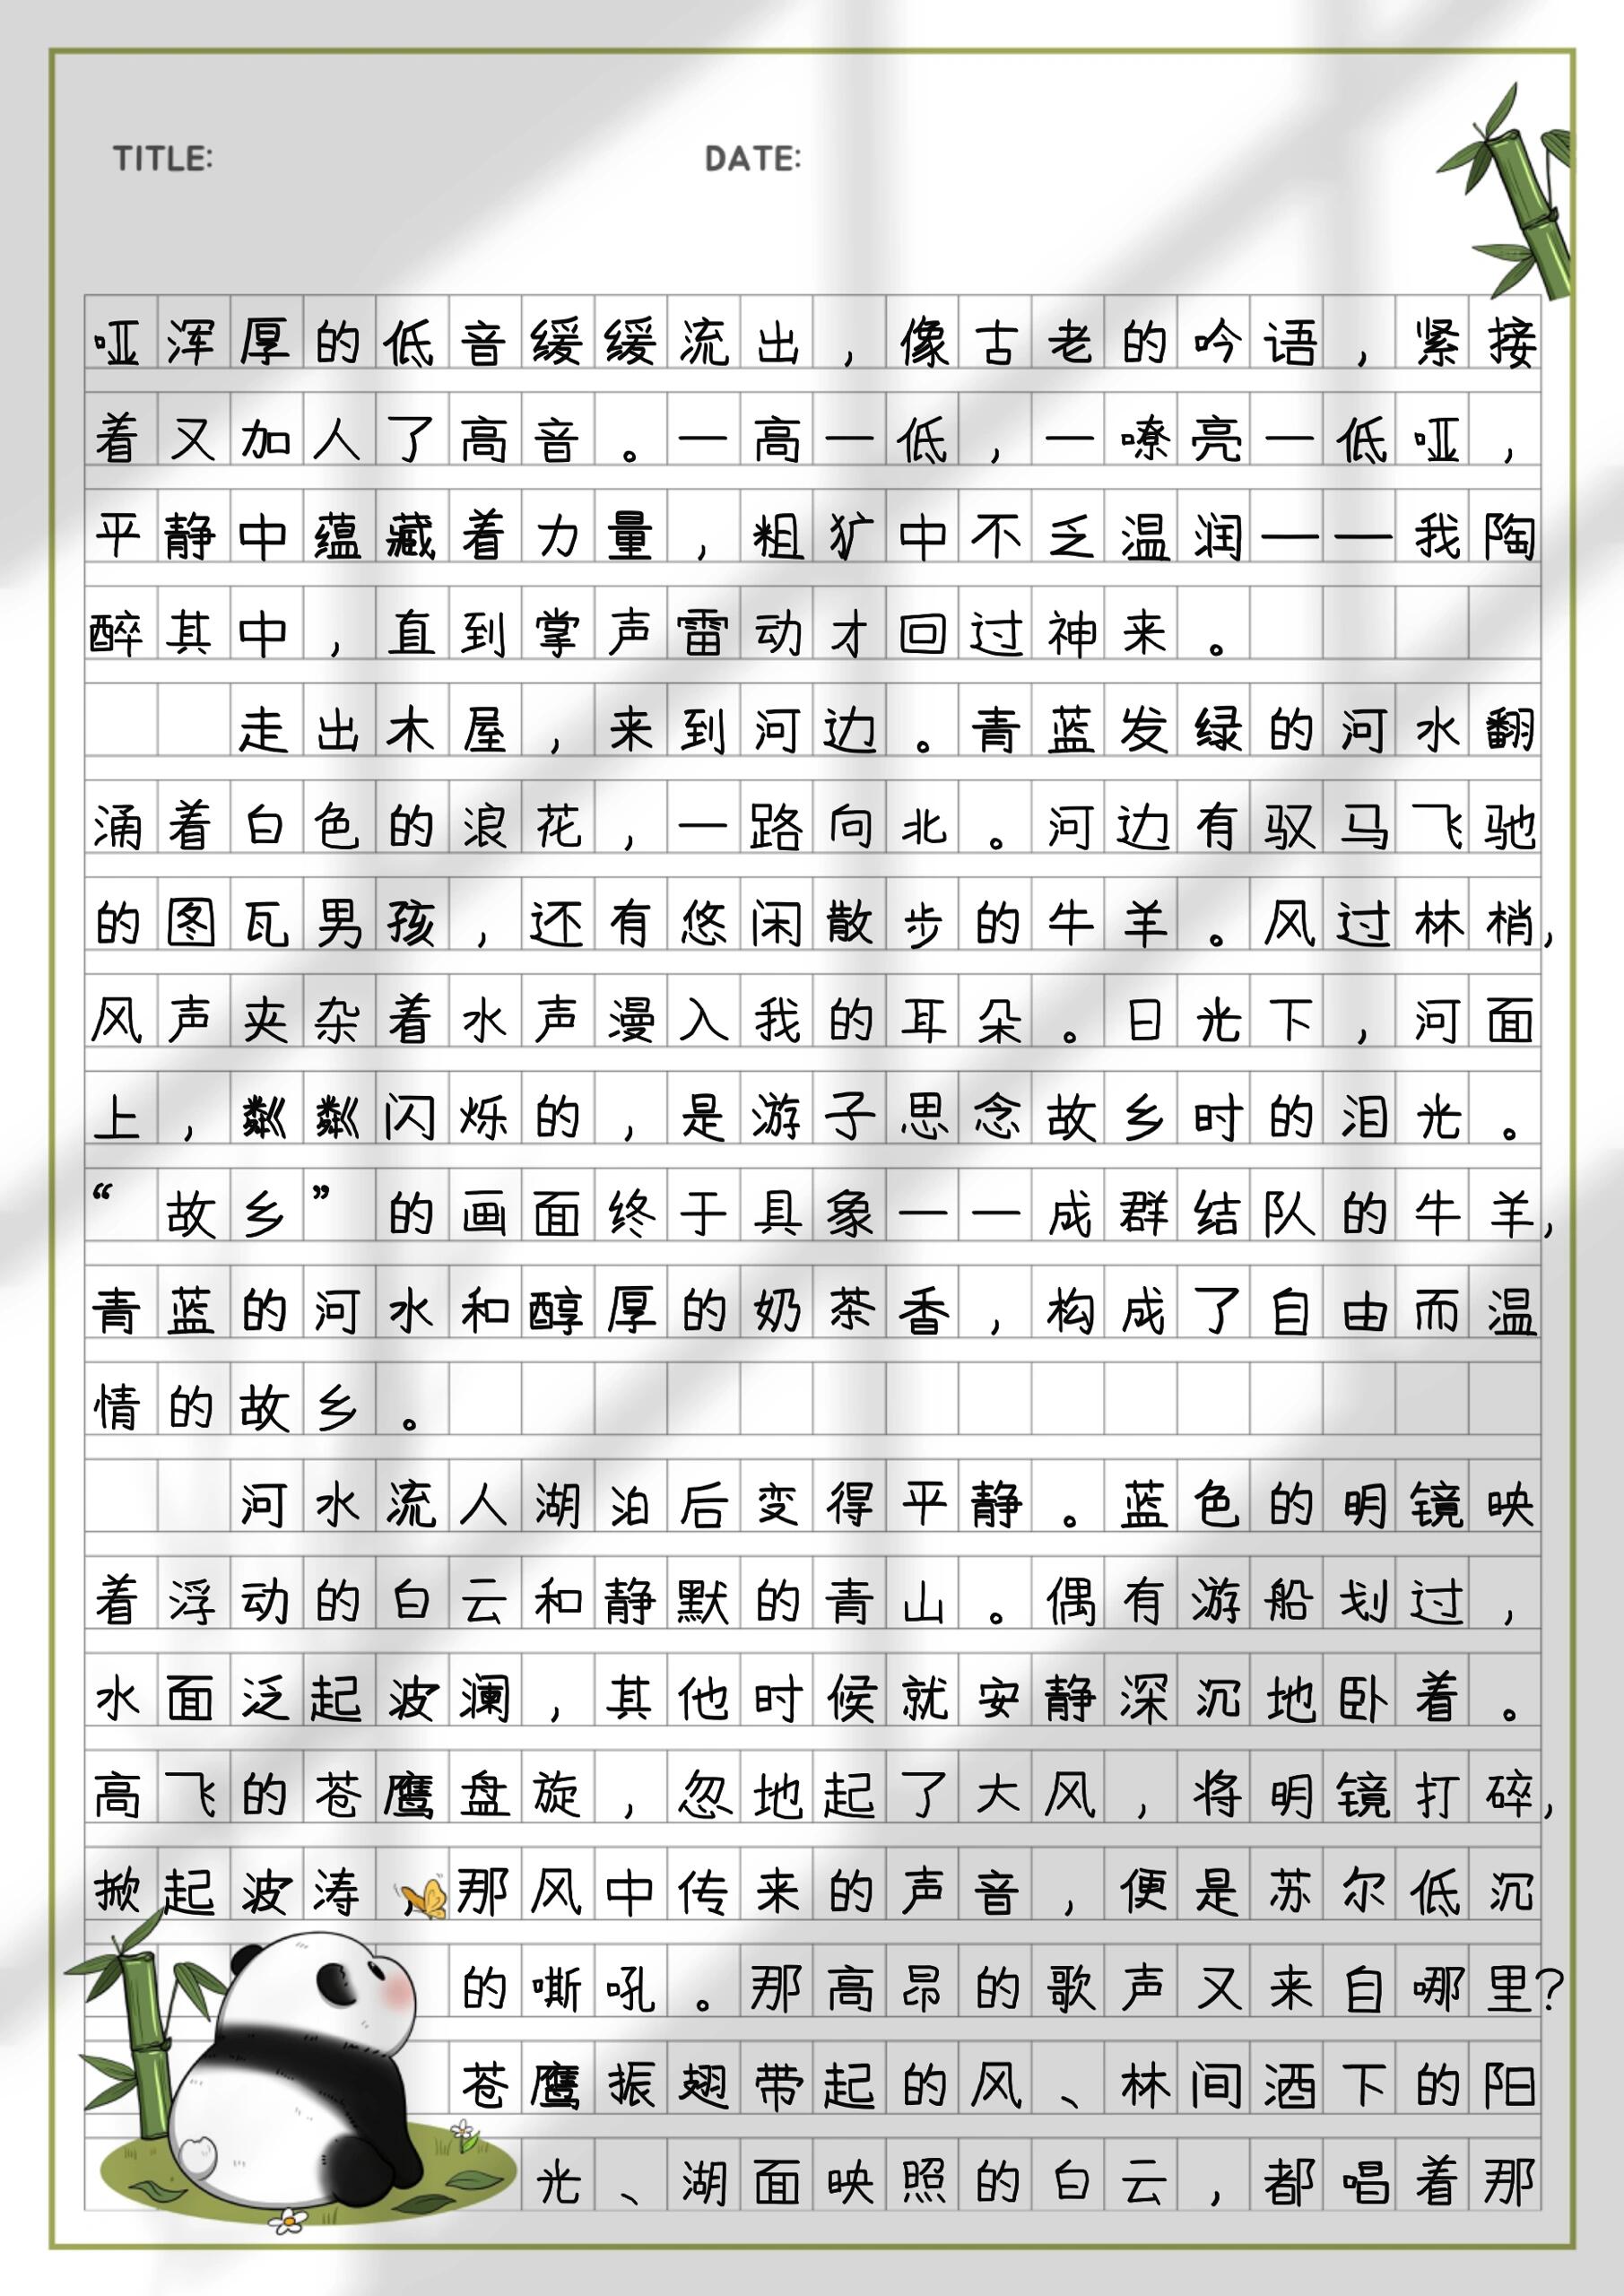 TITLE: DATE:
哑浑厚的低音缓缓流出,像古老的吟语,紧接
着又加人了高音。一高一低,一嘹亮一低哑,
平静中蕴藏着力量,粗犷中不乏温润——我陶
醉其中,直到掌声雷动才回过神来。
走出木屋,来到河边。青蓝发绿的河水翻
涌着白色的浪花,一路向北。河边有驭马飞驰
的图瓦男孩,还有悠闲散步的牛羊。风过林梢,
风声夹杂着水声漫入我的耳朵。日光下,河面
上,粼粼闪烁的,是游子思念故乡时的泪光。
“故乡”的画面终于具象——成群结队的牛羊,
青蓝的河水和醇厚的奶茶香,构成了自由而温
情的故乡。
河水流人湖泊后变得平静。蓝色的明镜映
着浮动的白云和静默的青山。偶有游船划过,
水面泛起波澜,其他时候就安静深沉地卧着。
高飞的苍鹰盘旋,忽地起了大风,将明镜打碎,
掀起波涛,那风中传来的声音,便是苏尔低沉
的嘶吼。那高昂的歌声又来自哪里?
苍鹰振翅带起的风、林间酒下的阳
光、湖面映照的白云,都唱着那